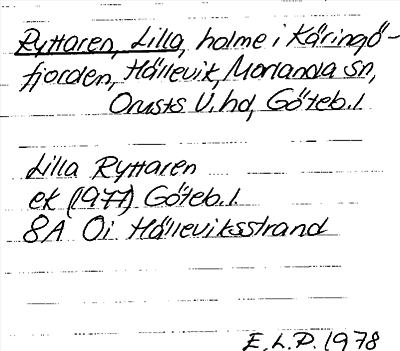 Ryttaren, Lilla, holme i Käringö-
fjorden, Hällevik, Morlanda sn,
Orusts V. hd, Göteb. l
Lilla Ryttaren
ek (1977) Göteb. l.
8A Oi Hälleviksstrand
E.L.P. 1978